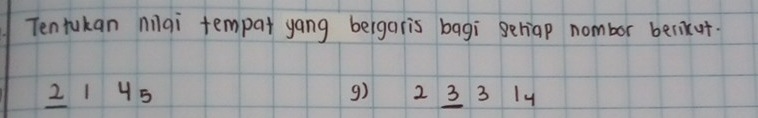 Tentukan nilai tempat yang bergaris bagi setiap nombor berikut.
2 1 4 5 g) 2 3 3 1 4